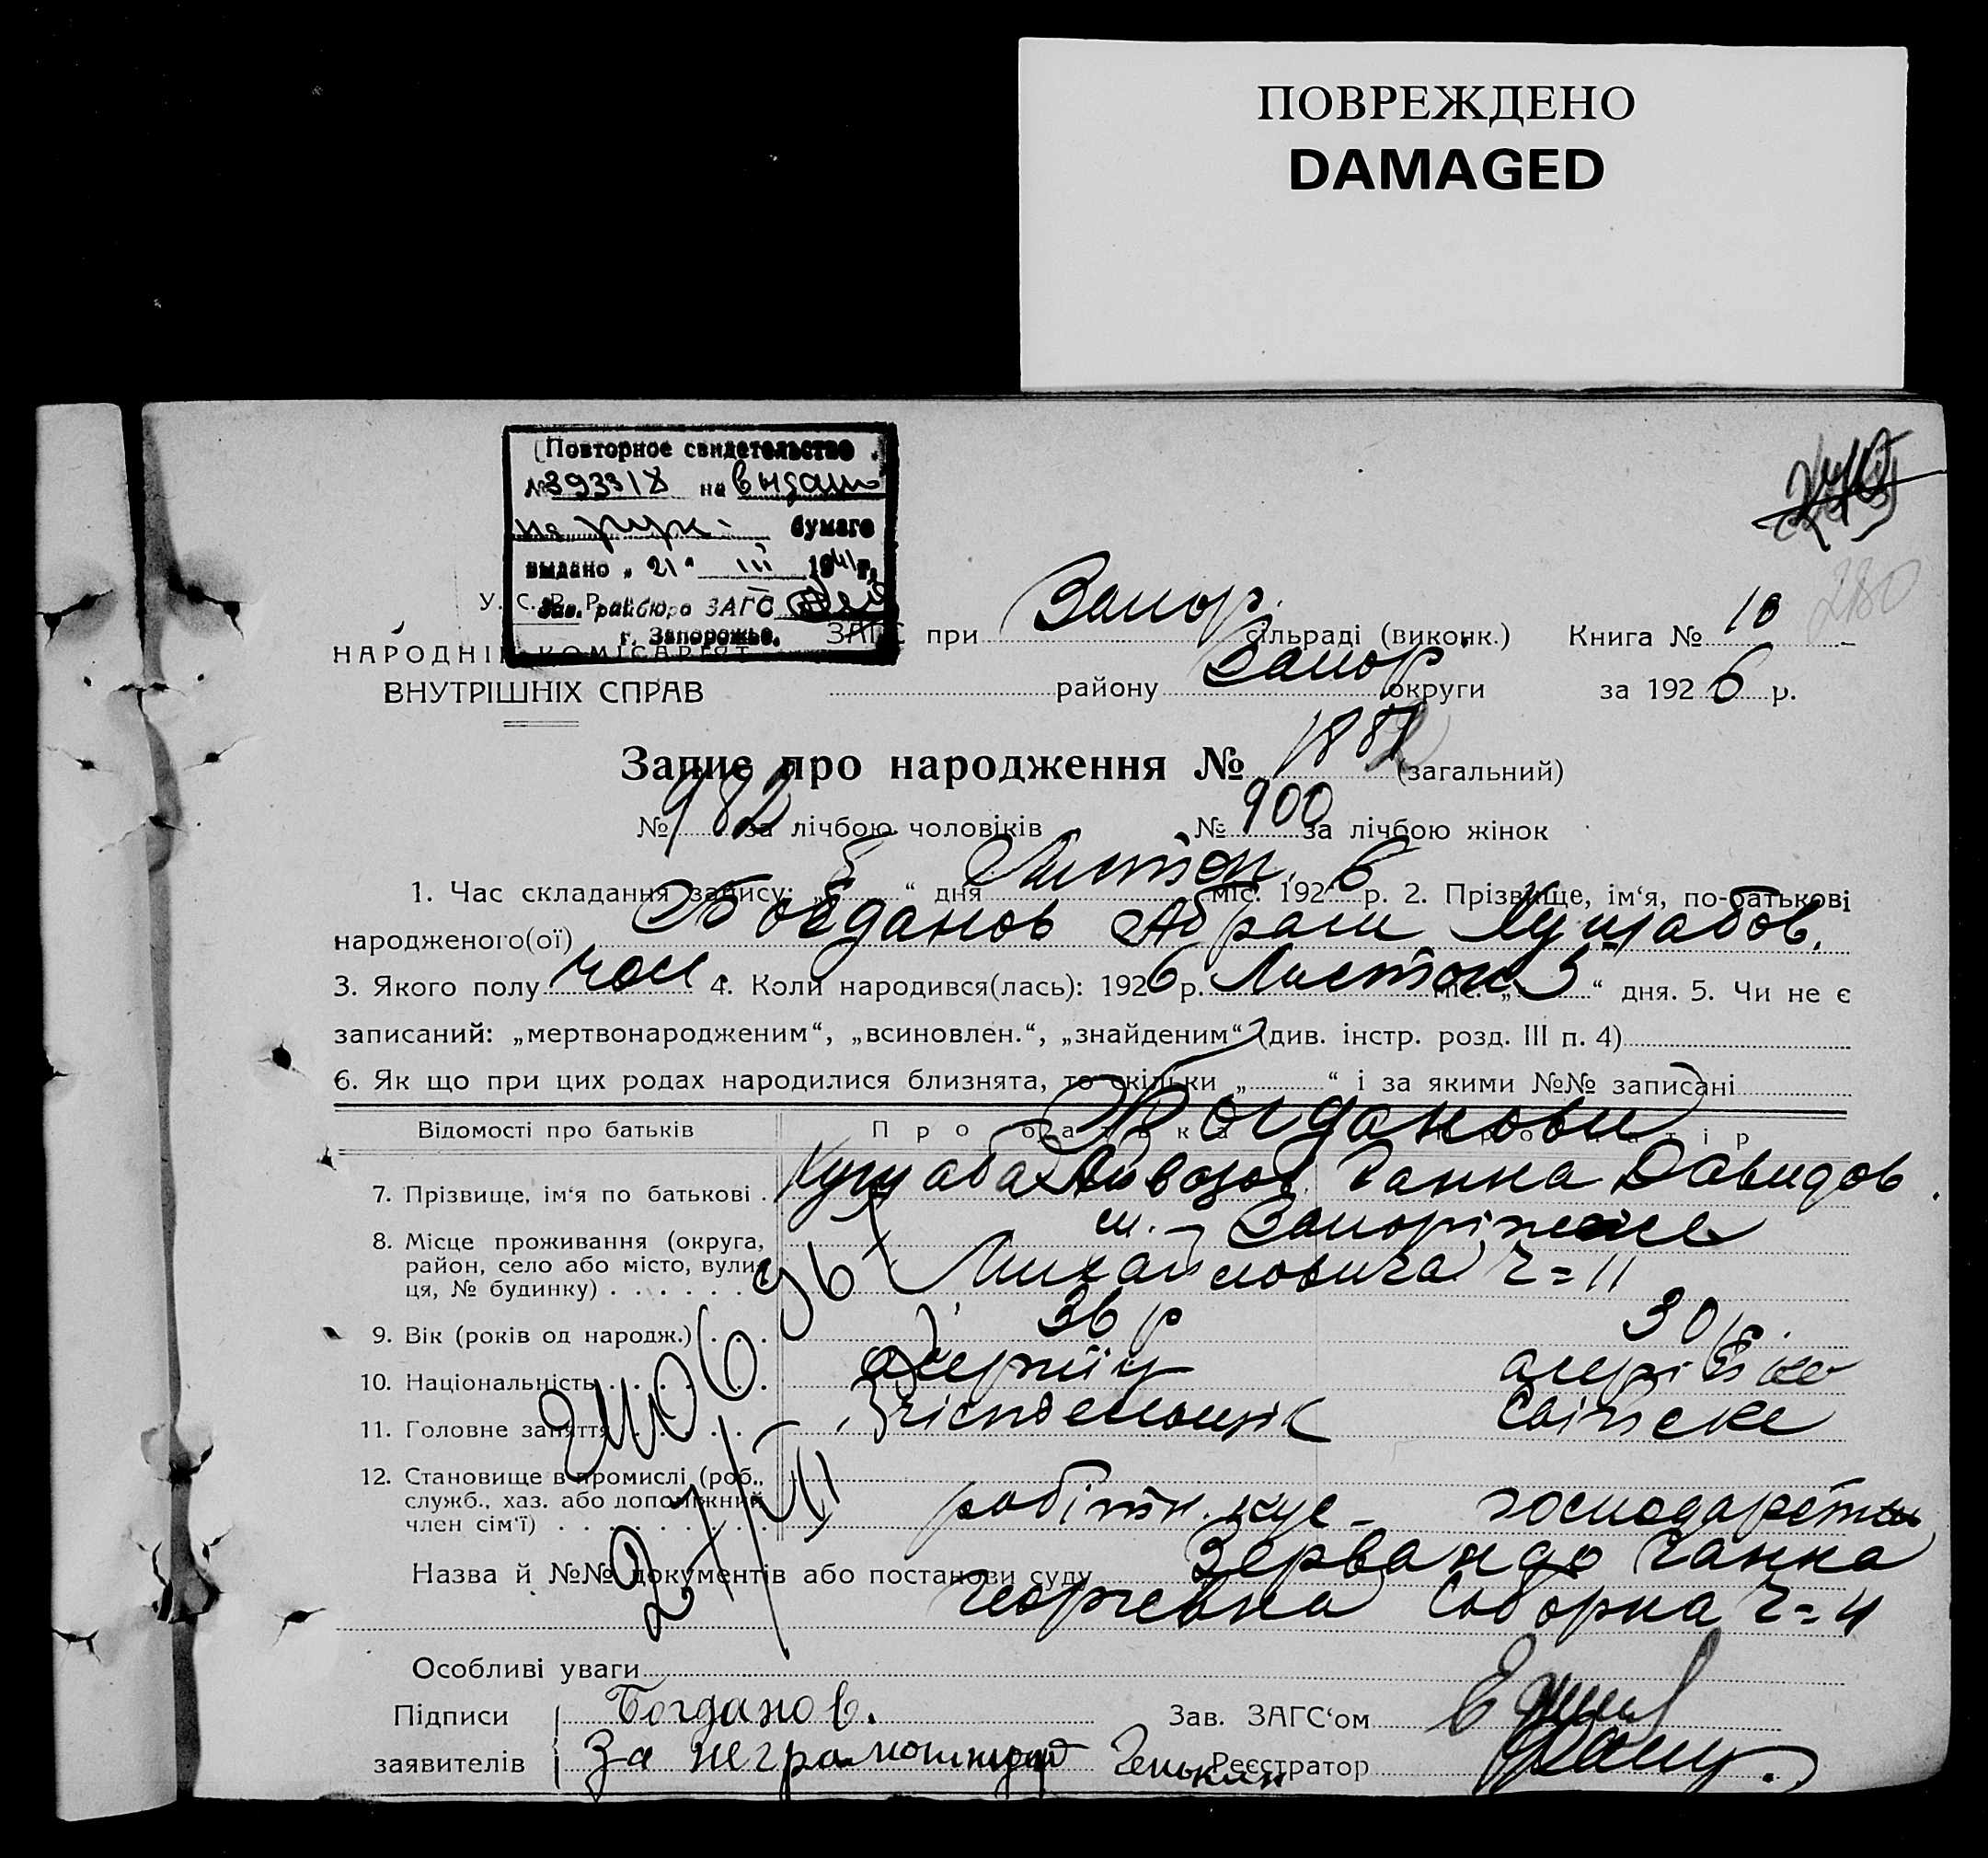 ПОВРЕЖДЕНО
DAMAGED
Повторное свидетельство
№393318 на
бумаге
выдано „21“ III 1941г.
Зав. райбюро ЗАГС
г. Запорожье.
280
У. С. Р. Р.
НАРОДНІЙ КОМІСАРІЯТ
ВНУТРІШНІХ СПРАВ
ЗАГС при Запор. сільраді (виконк.) Книга № 10
району Запор. округи за 1926 р.
Запис про народження № 1882 (загальний)
№ 982 за лічбою чоловіків № 900 за лічбою жінок
1. Час складання запису: „8“ дня Листоп. міс. 1926 р. 2. Прізвище, ім‘я, по-батькові
народженого(ої) Богданов Абрам Кушабов.
3. Якого полу чол. 4. Коли народився(лась): 1926 р. Листоп. міс. „5“ дня. 5. Чи не є
записаний: „мертвонародженим“, „всиновлен.“, „знайденим“ (див. інстр. розд. III п. 4)
6. Як що при цих родах народилися близнята, то скільки „ “ і за якими №№ записані
Відомості про батьків Про батька Про матір
Богданови
7. Прізвище, ім‘я по батькові . Кушаба Айвазов Ганна Давидов.
8. Місце проживання (округа, м. Запоріжжє
район, село або місто, вули-
ця, № будинку) . . . . . . ч = 11
9. Вік (років од народж.) . . . 36 р 30 р.
10. Національність . . . . . .
11. Головне заняття . . . . . .
12. Становище в промислі (роб.,
служб., хаз. або допоміжний
член сім‘ї) . . . . . . . . . робітн. господарств
Назва й №№ документів або постанови суду Ганна
Георгевна Соборна ч = 4
Особливі уваги
Підписи Богданов. Зав. ЗАГС‘ом
заявителів За Реєстратор